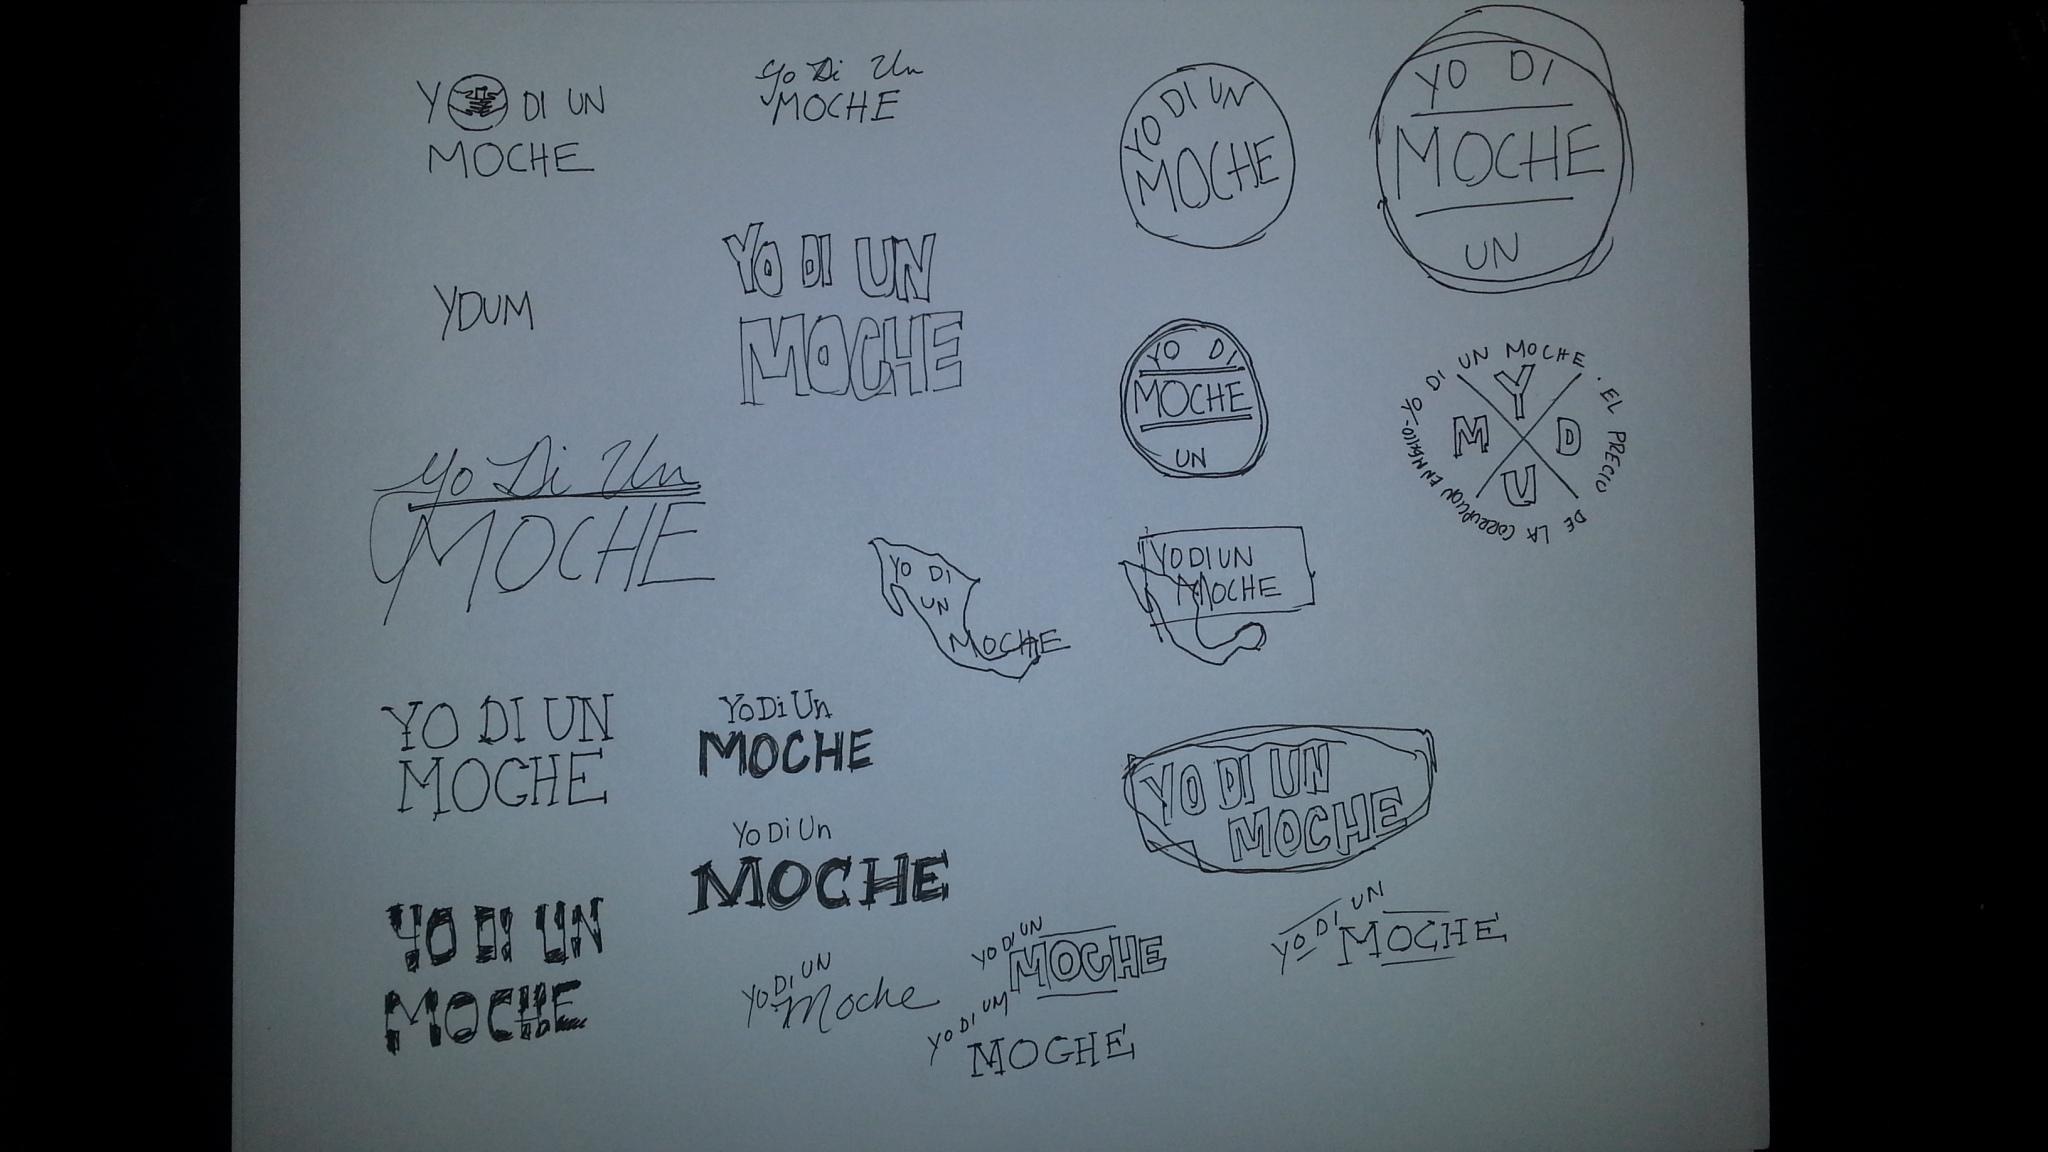 YO DI UN
MOCHE
Yo Di Un
MOCHE
YO DI UN
MOCHE
YO DI
MOCHE
UN
YDUM
YO DI UN
MOCHE
YO DI
MOCHE
UN
YO DI UN MOCHE . EL PRECIO DE LA CORRUPCIÓN EN MEXICO.
Y
M D
U
Yo Di Un
MOCHE
YO DI
UN
MOCHE
YO DI UN
MOCHE
YO DI UN
MOCHE
Yo Di Un
MOCHE
YO DI UN
MOCHE
Yo Di Un
MOCHE
YO DI UN
MOCHE
YO DI UN
Moche
YO DI UN
MOCHE
YO DI UM
MOCHE
YO DI UN
MOCHE